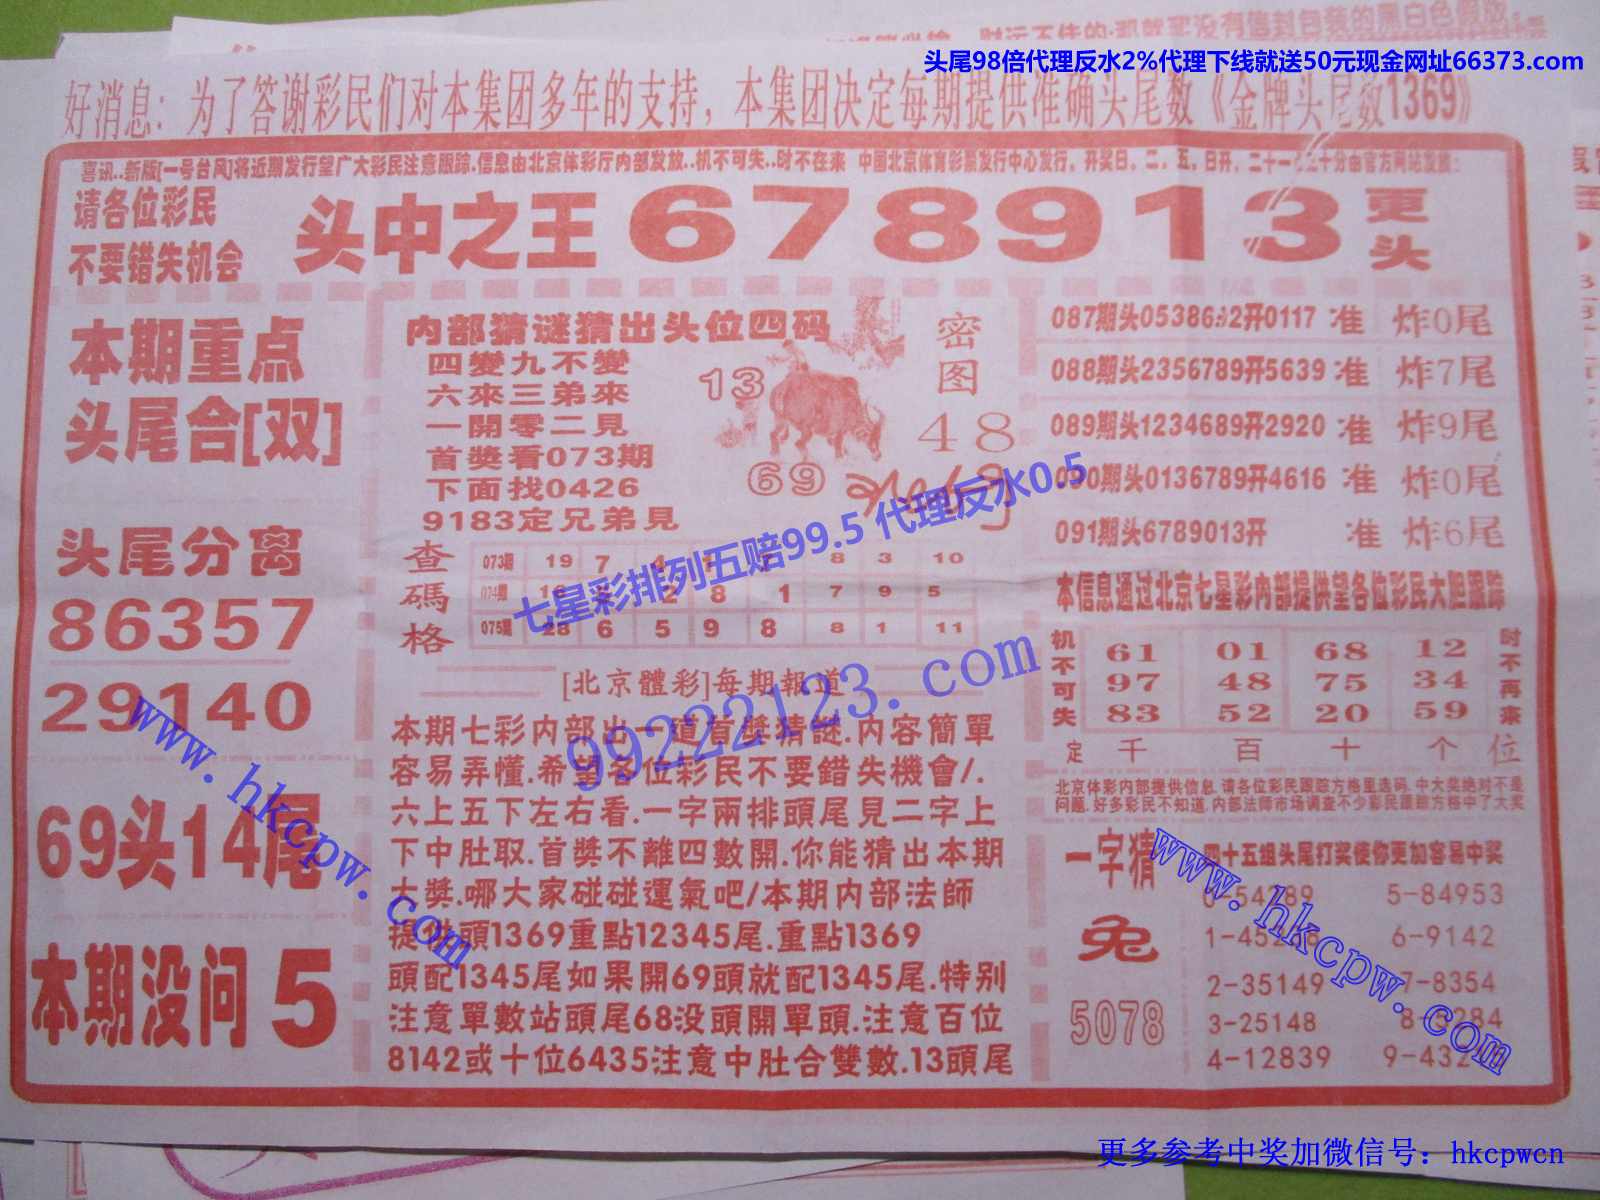 头尾98倍代理反水2%代理下线就送50元现金网址66373.com
好消息：为了答谢彩民们对本集团多年的支持，本集团决定每期提供准确头尾数《金牌头尾数1369》
喜讯..新版[一号台风]将近期发行望广大彩民注意跟踪.信息由北京体彩厅内部发放..机不可失..时不在来 中国北京体育彩票发行中心发行，开奖日，二，五，日开，二十一
请各位彩民
不要错失机会
头中之王678913更头
本期重点
头尾合[双]
头尾分离
86357
29140
69头14尾
本期没问5
内部猜谜猜出头位四码
四變九不變
六來三弟來
一開零二見
首獎看073期
下面找0426
9183定兄弟見
密图
13
48
69
查碼格
073期 19 7 8 3 10
074期 2 8 1 7 9 5
075期 28 6 5 9 8 8 1 11
[北京體彩]每期報道
本期七彩内部出一道首獎猜謎.内容簡單
容易弄懂.希望各位彩民不要錯失機會/.
六上五下左右看.一字兩排頭尾見二字上
下中肚取.首獎不離四數開.你能猜出本期
大獎.哪大家碰碰運氣吧/本期内部法師
提供頭1369重點12345尾.重點1369
頭配1345尾如果開69頭就配1345尾.特别
注意單數站頭尾68没頭開單頭.注意百位
8142或十位6435注意中肚合雙數.13頭尾
087期头0538642开0117 准 炸0尾
088期头2356789开5639 准 炸7尾
089期头1234689开2920 准 炸9尾
090期头0136789开4616 准 炸0尾
091期头6789013开 准 炸6尾
本信息通过北京七星彩内部提供望各位彩民大胆跟踪
机不可失
61 01 68 12
97 48 75 34
83 52 20 59
时不再来
定 千 百 十 个 位
北京体彩内部提供信息.请各位彩民跟踪方格里选码.中大奖绝对不是
问题.好多彩民不知道.内部法师市场调查不少彩民跟踪方格中了大奖
一字猜
兔
5078
四十五组头尾打奖使你更加容易中奖
5-84953
6-9142
2-35149 7-8354
3-25148
4-12839
七星彩排列五赔99.5 代理反水0.5
99222123.com
www.hkcpw.com
www.hkcpw.com
更多参考中奖加微信号：hkcpwcn